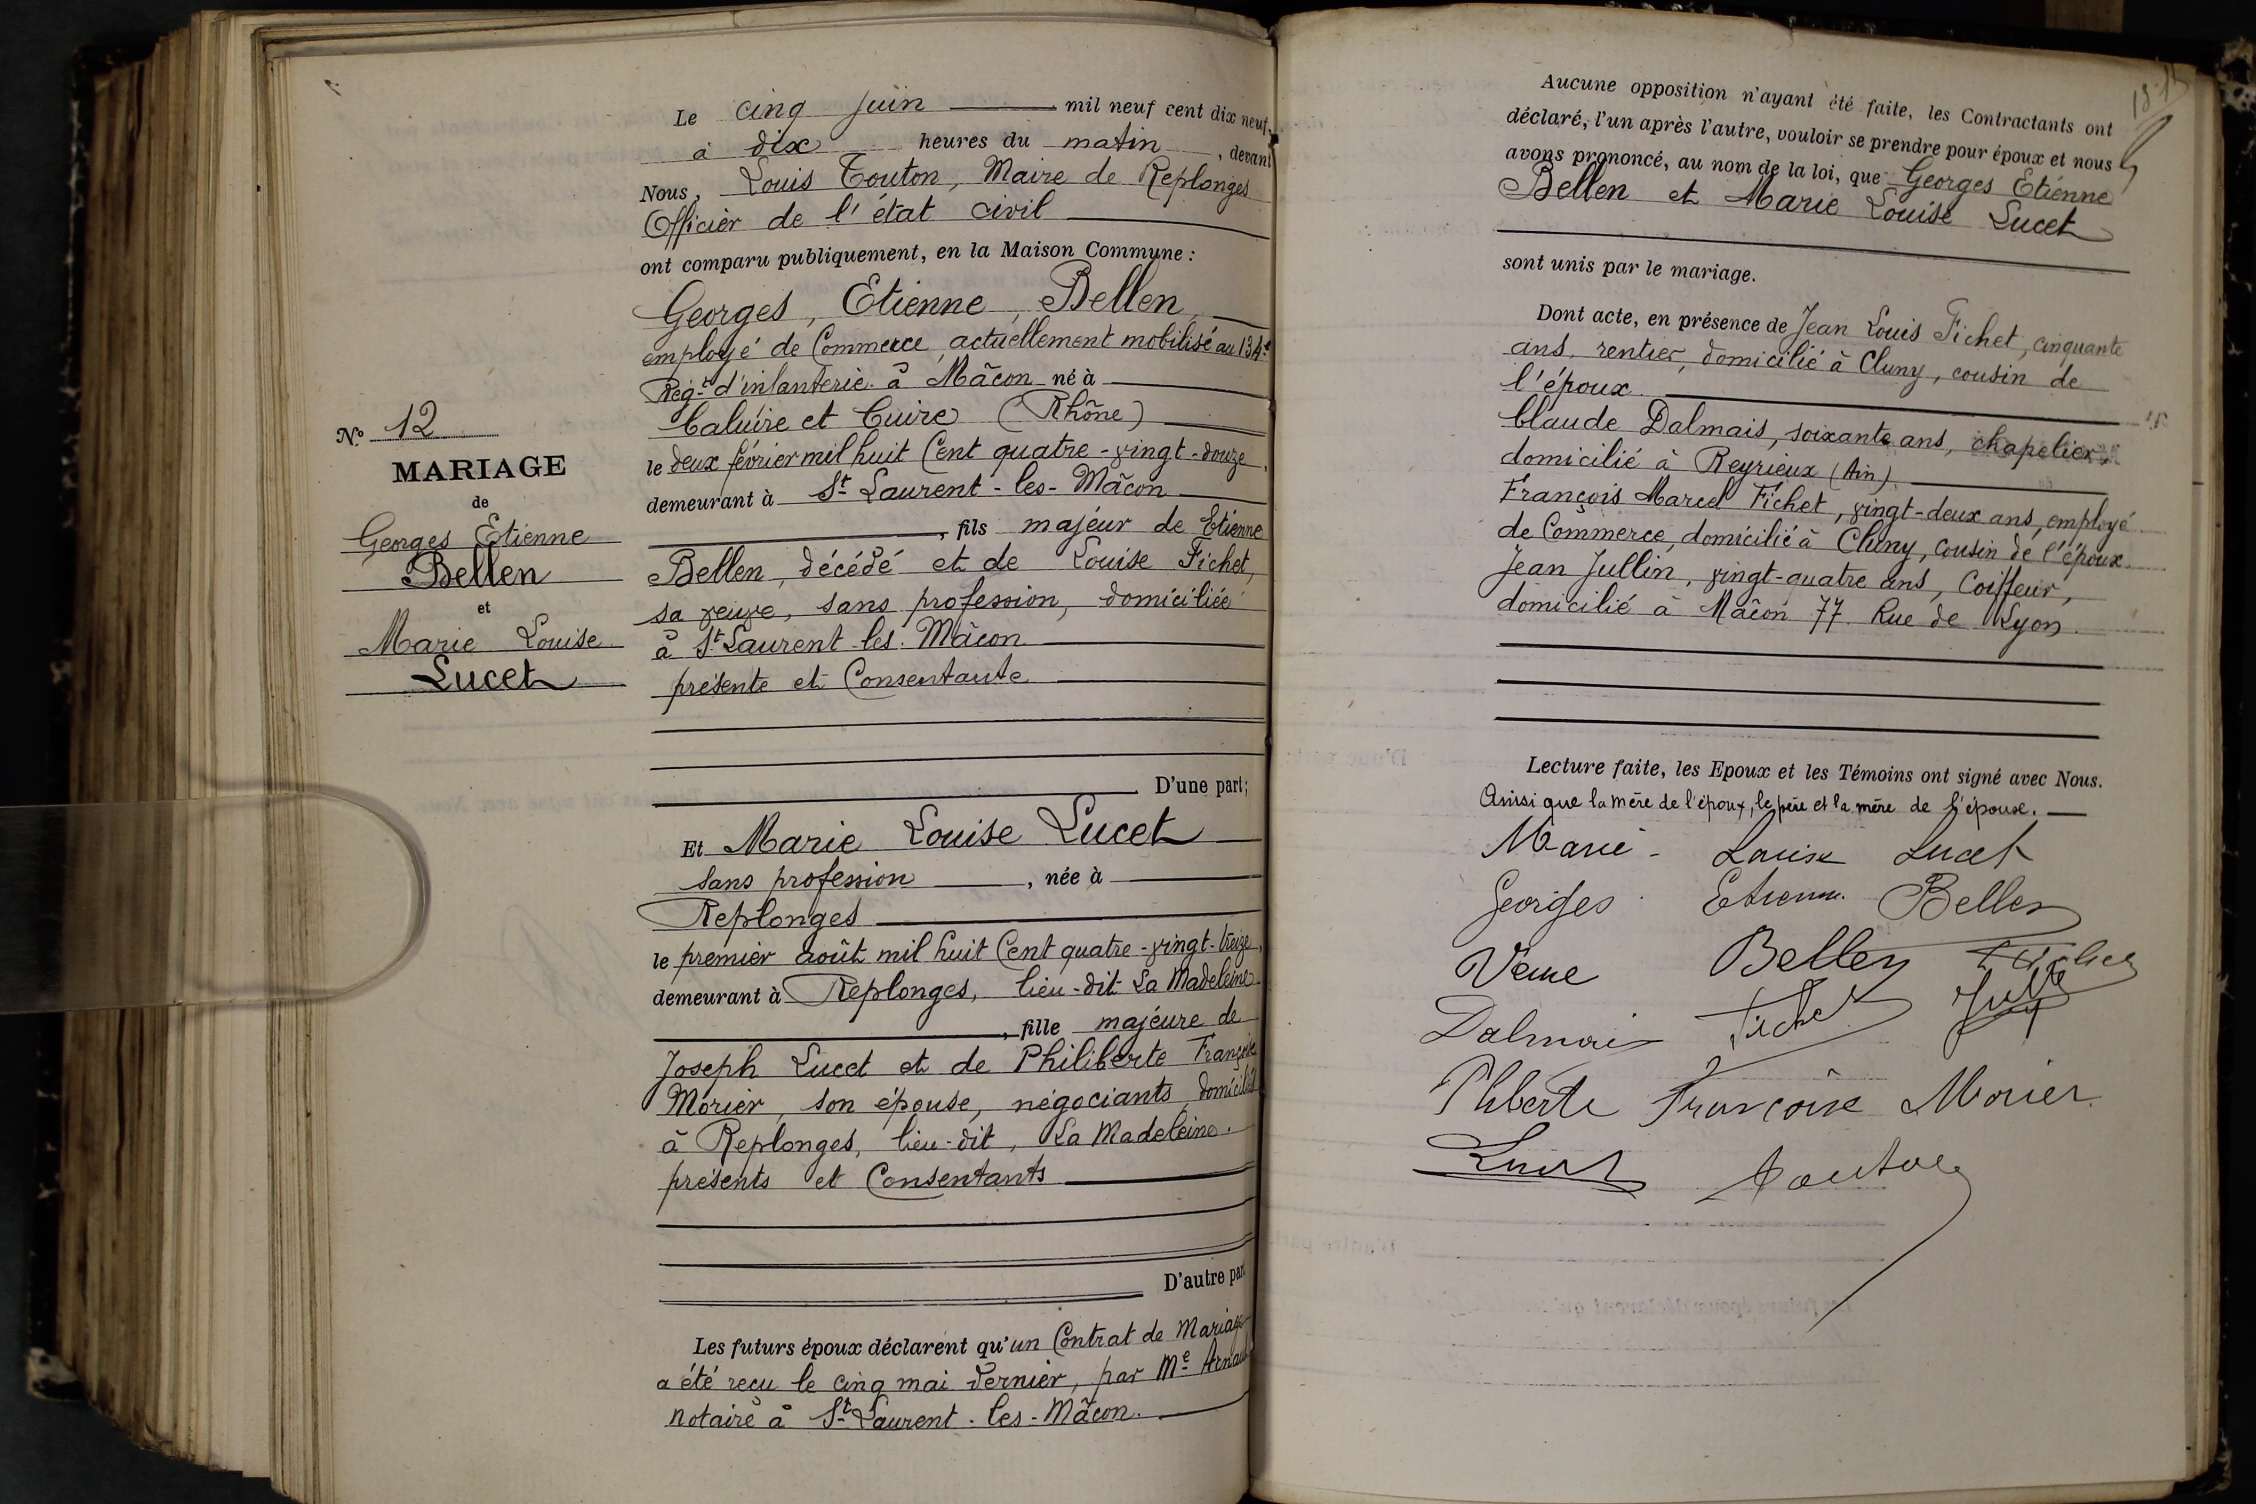 N° 12
MARIAGE
de
Georges Etienne
Bellen
et
Marie Louise
Lucet
Le cinq juin mil neuf cent dix neuf,
à dix heures du matin, devant
Nous, Louis Touton, Maire de Replonges
Officier de l'état civil
ont comparu publiquement, en la Maison Commune :
Georges, Etienne, Bellen,
employé de Commerce, actuellement mobilisé au 134e
Régt d'infanterie à Mâcon né à
Caluire et Cuire (Rhône)
le deux février mil huit Cent quatre-vingt-douze,
demeurant à St Laurent-les-Mâcon
, fils majeur de Etienne
Bellen, décédé et de Louise Fichet,
sa veuve, sans profession, domiciliée
à St Laurent-les-Mâcon
présente et Consentante
D'une part;
Et Marie Louise Lucet
sans profession, née à
Replonges
le premier août mil huit Cent quatre-vingt-treize,
demeurant à Replonges, lieu-dit La Madeleine
, fille majeure de
Joseph Lucet et de Philiberte Françoise
Morier, son épouse, négociants, domiciliés
à Replonges, lieu-dit, La Madeleine.
présents et Consentants
D'autre part
Les futurs époux déclarent qu'un Contrat de Mariage
a été reçu le cinq mai dernier, par Me Arnaud
notaire à St Laurent-les-Mâcon.
Aucune opposition n'ayant été faite, les Contractants ont
déclaré, l'un après l'autre, vouloir se prendre pour époux et nous
avons prononcé, au nom de la loi, que Georges Etienne
Bellen et Marie Louise Lucet
sont unis par le mariage.
Dont acte, en présence de Jean Louis Fichet, cinquante
ans, rentier, domicilié à Cluny, cousin de
l'époux
Claude Dalmais, soixante ans, chapelier,
domicilié à Reyrieux (Ain)
François Marcel Fichet, vingt-deux ans, employé
de Commerce, domicilié à Cluny, cousin de l'époux
Jean Jullin, vingt-quatre ans, Coiffeur,
domicilié à Mâcon 77 Rue de Lyon.
Lecture faite, les Epoux et les Témoins ont signé avec Nous.
Ainsi que la mère de l'époux, le père et la mère de l'épouse.
Marie-Louise Lucet
Georges Etienne Bellen
Veuve Bellen Fichet
Dalmais Fichet
Phliberte Françoise Morier
Lucet Touton